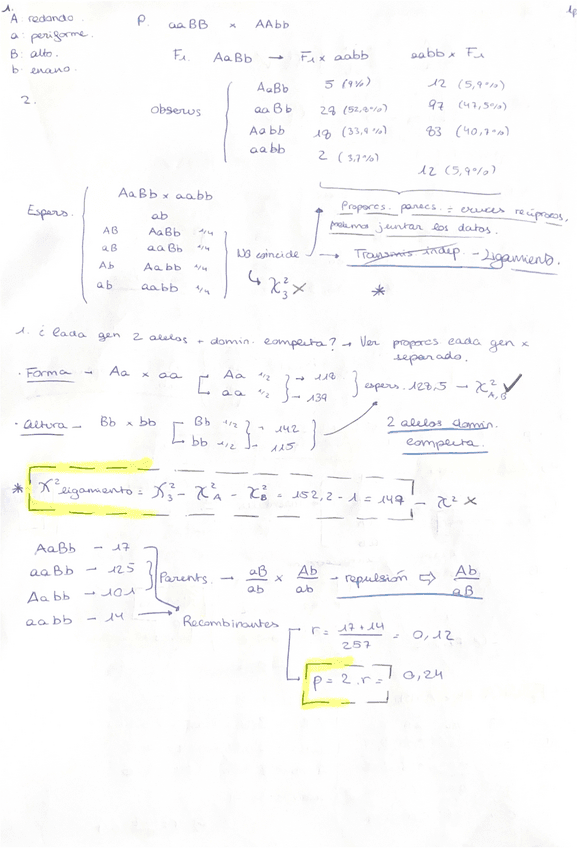 1.
A redondo. P. aaBB × AAbb
a: periforme.
B: alto. F1. AaBb → F1 × aabb aabb × F1
b: enano.
2. Observs
AaBb 5 (9%) 12 (5,9%)
aaBb 28 (52,8%) 97 (47,5%)
Aabb 18 (33,9%) 83 (40,7%)
aabb 2 (3,7%) 12 (5,9%)
Espers. AaBb × aabb
ab
AB AaBb 1/4
aB aaBb 1/4
Ab Aabb 1/4
ab aabb 1/4
No coincide → Transmis indep. - Ligamiento.
↳ χ²₃ ×
Propores. parecs. = cruces recíprocos,
podemos juntar los datos.
*
1. ¿Cada gen 2 alelos + domin. completa? → Ver propores cada gen x
separado.
· Forma → Aa × aa [ Aa 1/2 → 118
aa 1/2 → 139 ] espers. 128,5 → χ²A,B ✓
· Altura → Bb × bb [ Bb 1/2 - 142
bb 1/2 - 115
2 alelos domin.
completa.
* χ² ligamiento = χ²₃ - χ²A - χ²B = 152,2 - 1 = 149 - χ² ×
AaBb - 17
aaBb - 125
Aabb - 101
aabb - 14
Parents. → aB/ab × Ab/ab - repulsión ⇨ Ab/aB
Recombinantes
r = 17+14/257 = 0,12
p = 2.r = 0,24